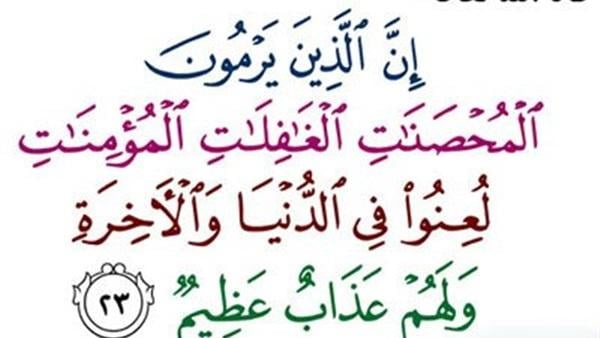 إِنَّ ٱلَّذِينَ يَرۡمُونَ
ٱلۡمُحۡصَنَٰتِ ٱلۡغَٰفِلَٰتِ ٱلۡمُؤۡمِنَٰتِ
لُعِنُواْ فِي ٱلدُّنۡيَا وَٱلۡأٓخِرَةِ
وَلَهُمۡ عَذَابٌ عَظِيمٞ ٢٣